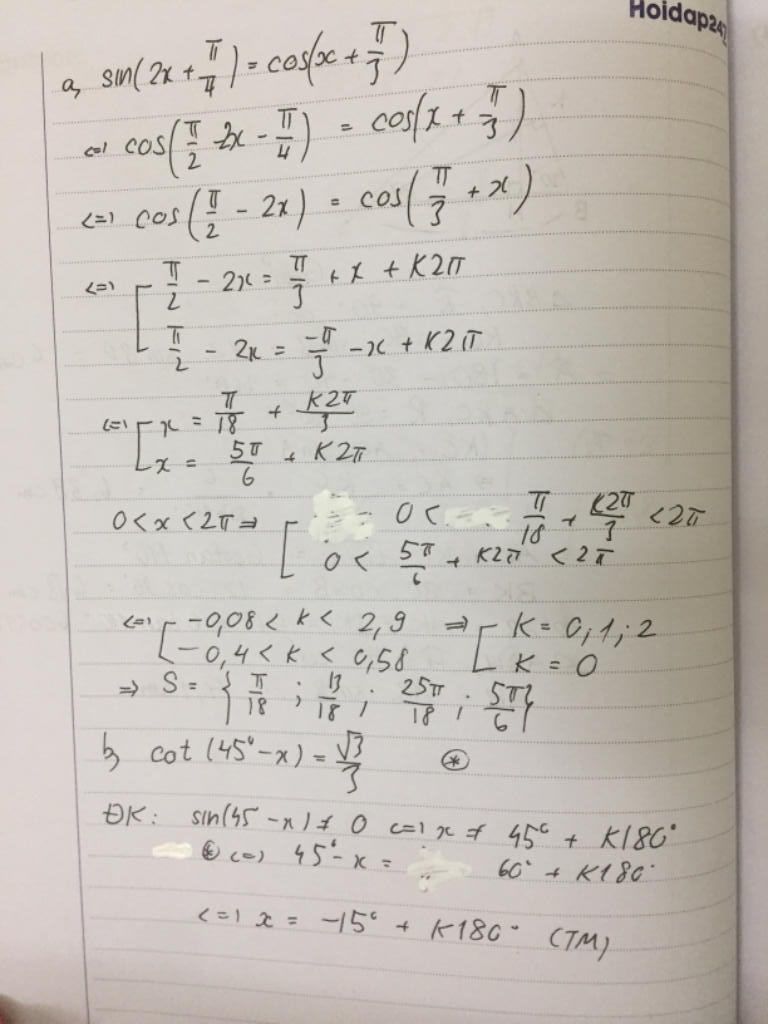 Hoidap247
a, sin(2x + π/4) = cos(x + π/3)
<=> cos(π/2 - 2x - π/4) = cos(x + π/3)
<=> cos(π/2 - 2x) = cos(π/3 + x)
<=> [ π/2 - 2x = π/3 + x + K2π
π/2 - 2x = -π/3 - x + K2π
<=> [ x = π/18 + K2π/3
x = 5π/6 + K2π
0 < x < 2π => [ 0 < π/18 + K2π/3 < 2π
0 < 5π/6 + K2π < 2π
<=> [ -0,08 < K < 2,9 => [ K = 0,1;2
-0,4 < K < 0,58 K = 0
=> S = { π/18 ; 13/18 ; 25π/18 ; 5π/6 }
b, cot (45° - x) = √3/3 (*)
ĐK: sin(45 - x) ≠ 0 <=> x ≠ 45° + K180°
(*) <=> 45° - x = 60° + K180°
<=> x = -15° + K180° (TM)